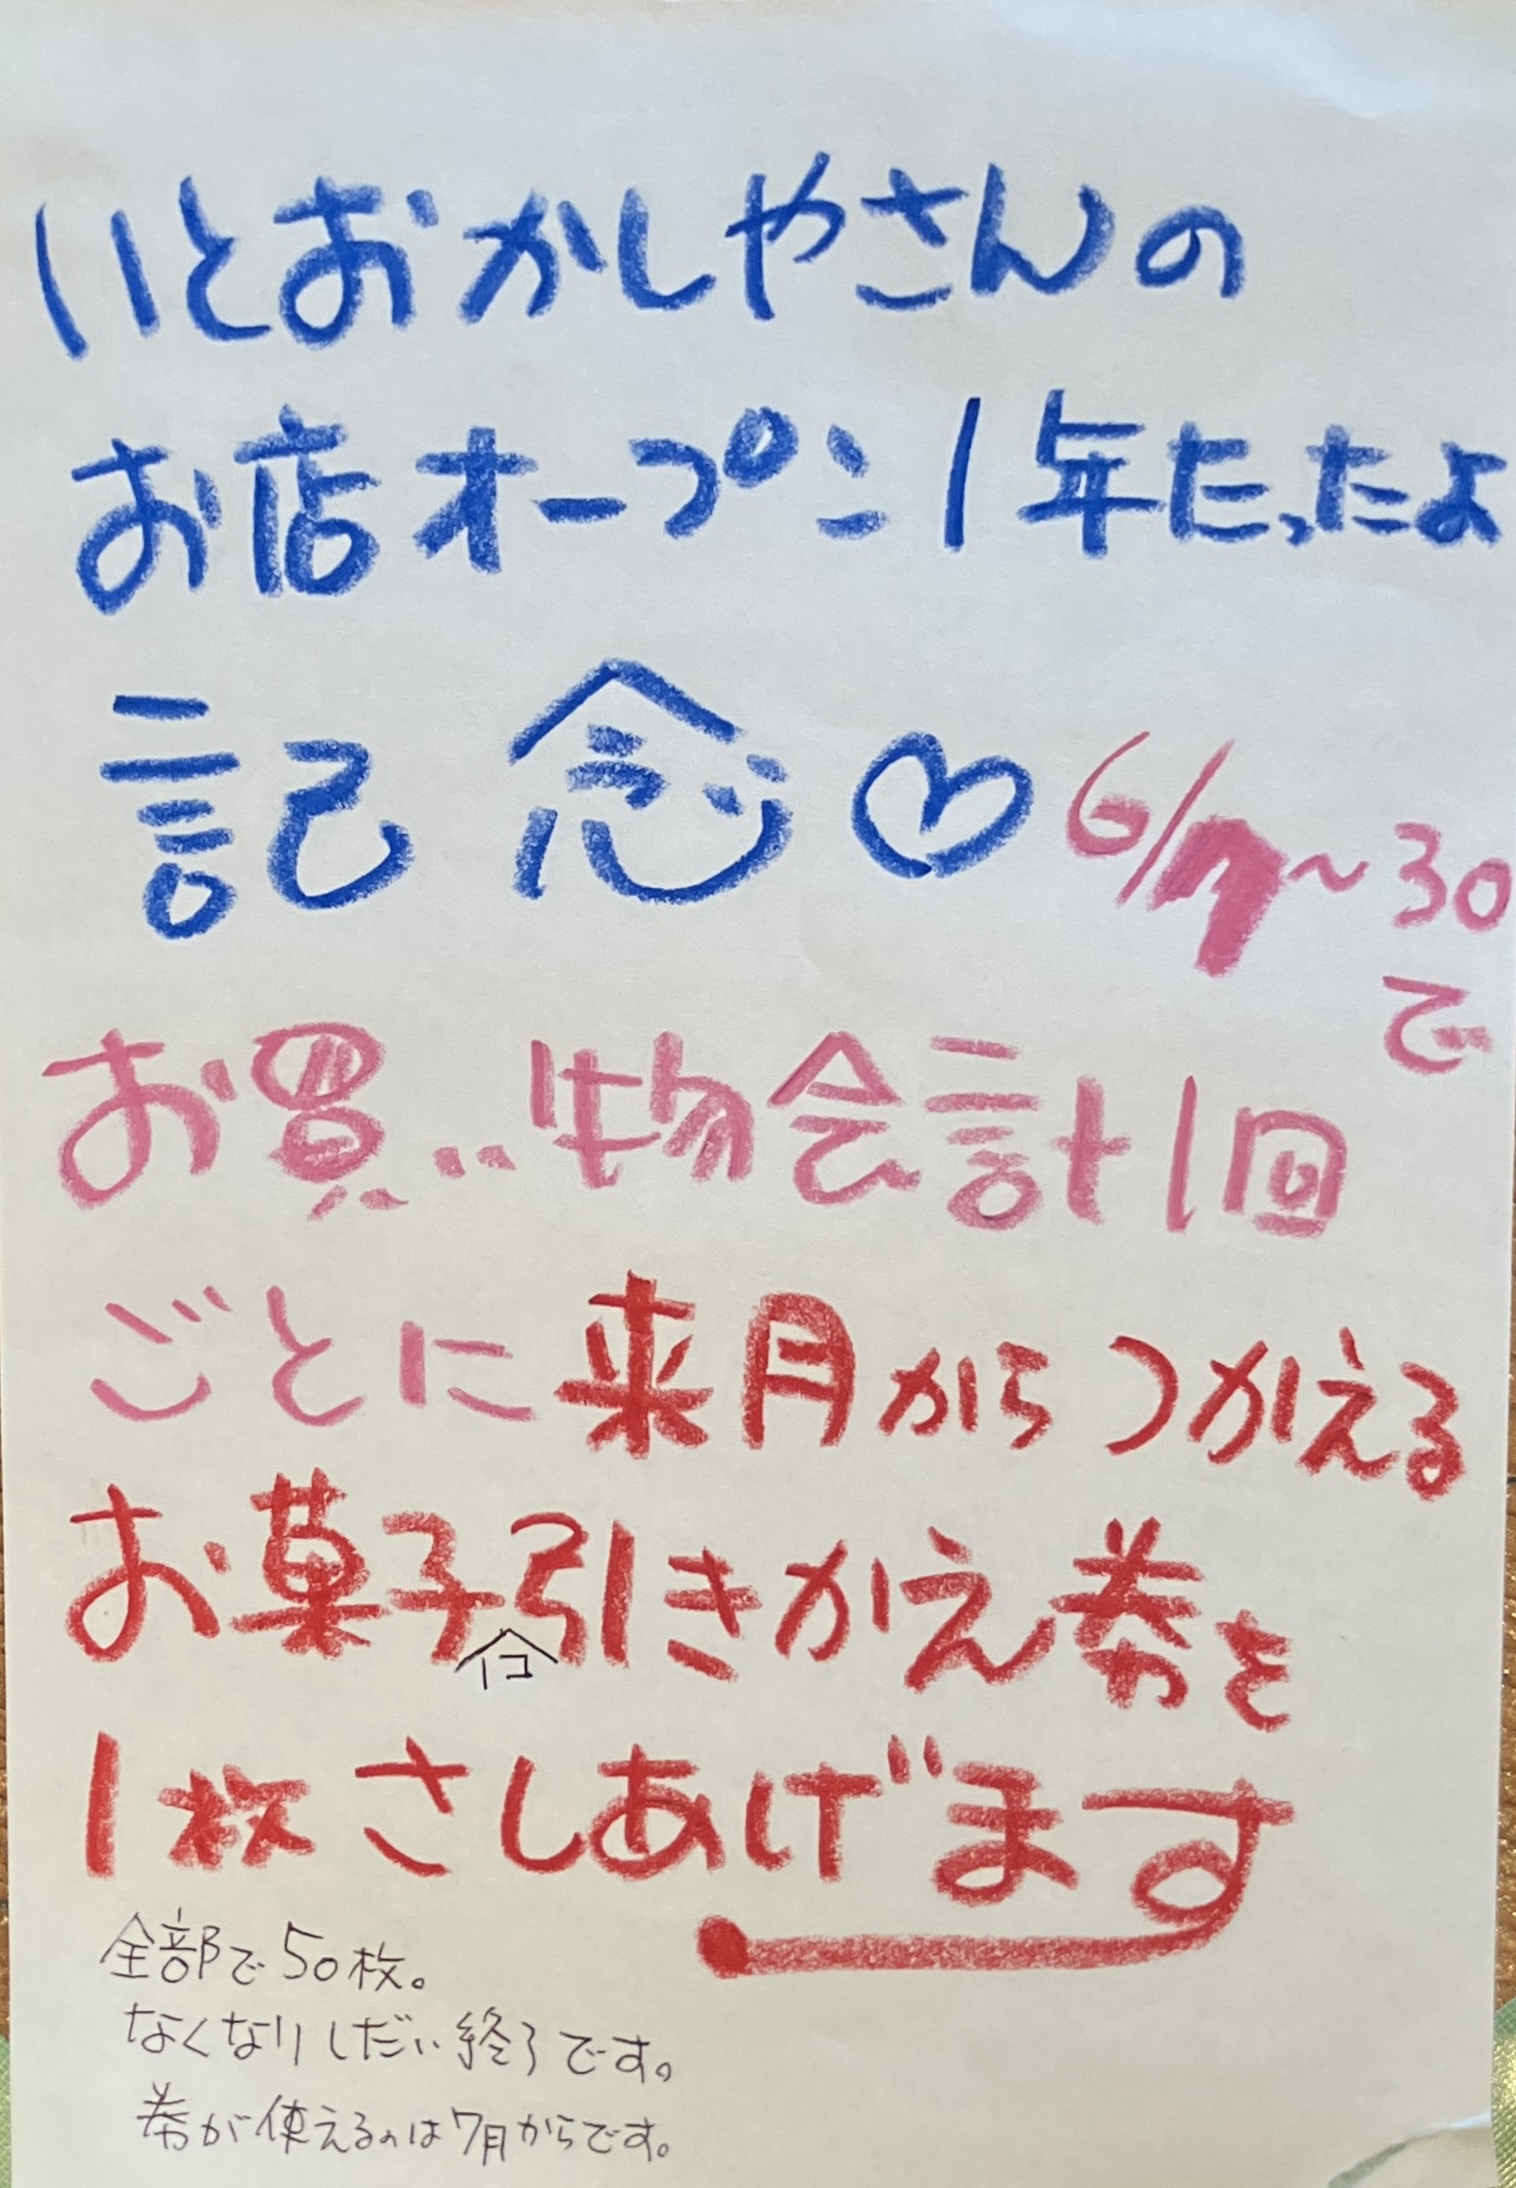 いとおかしやさんの
お店オープン1年たったよ
記念♡ 6/7~30
で
お買い物会計1回
ごとに来月からつかえる
お菓子引きかえ券を
1枚さしあげます
全部で50枚。
なくなりしだい終了です。
券が使えるのは7月からです。